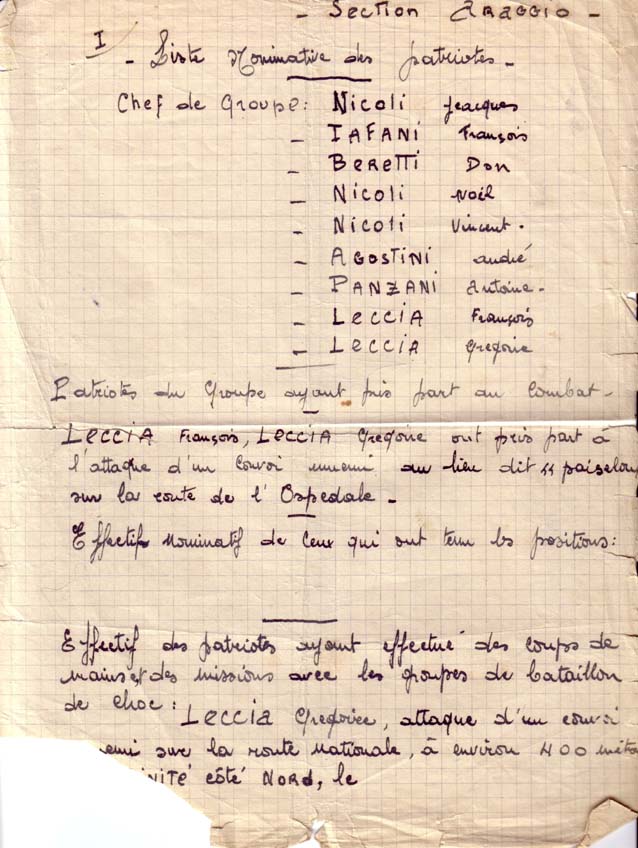 - Section ARAGGIO -
I
- Liste Nominative des patriotes -
Chef de Groupe: Nicoli Jacques
- TAFANI François
- BERETTI Don
- Nicoli Noël
- Nicoli Vincent.
- AGOSTINI andré
- PANZANI Antoine -
- LECCIA François
- LECCIA Gregoire
Patriotes du Groupe ayant pris part au Combat -
LECCIA François, LECCIA Gregoire ont pris part à
l'attaque d'un Convoi ennemi au lieu dit "
sur la route de l'Ospedale -
Effectif Nominatif de Ceux qui ont tenu les positions:
Effectif des patriotes ayant effectué des coups de
mains et des missions avec les groupes de bataillon
de choc: LECCIA Gregoire, attaque d'un convoi
sur la route Nationale, à environ 400
côté NORD, le